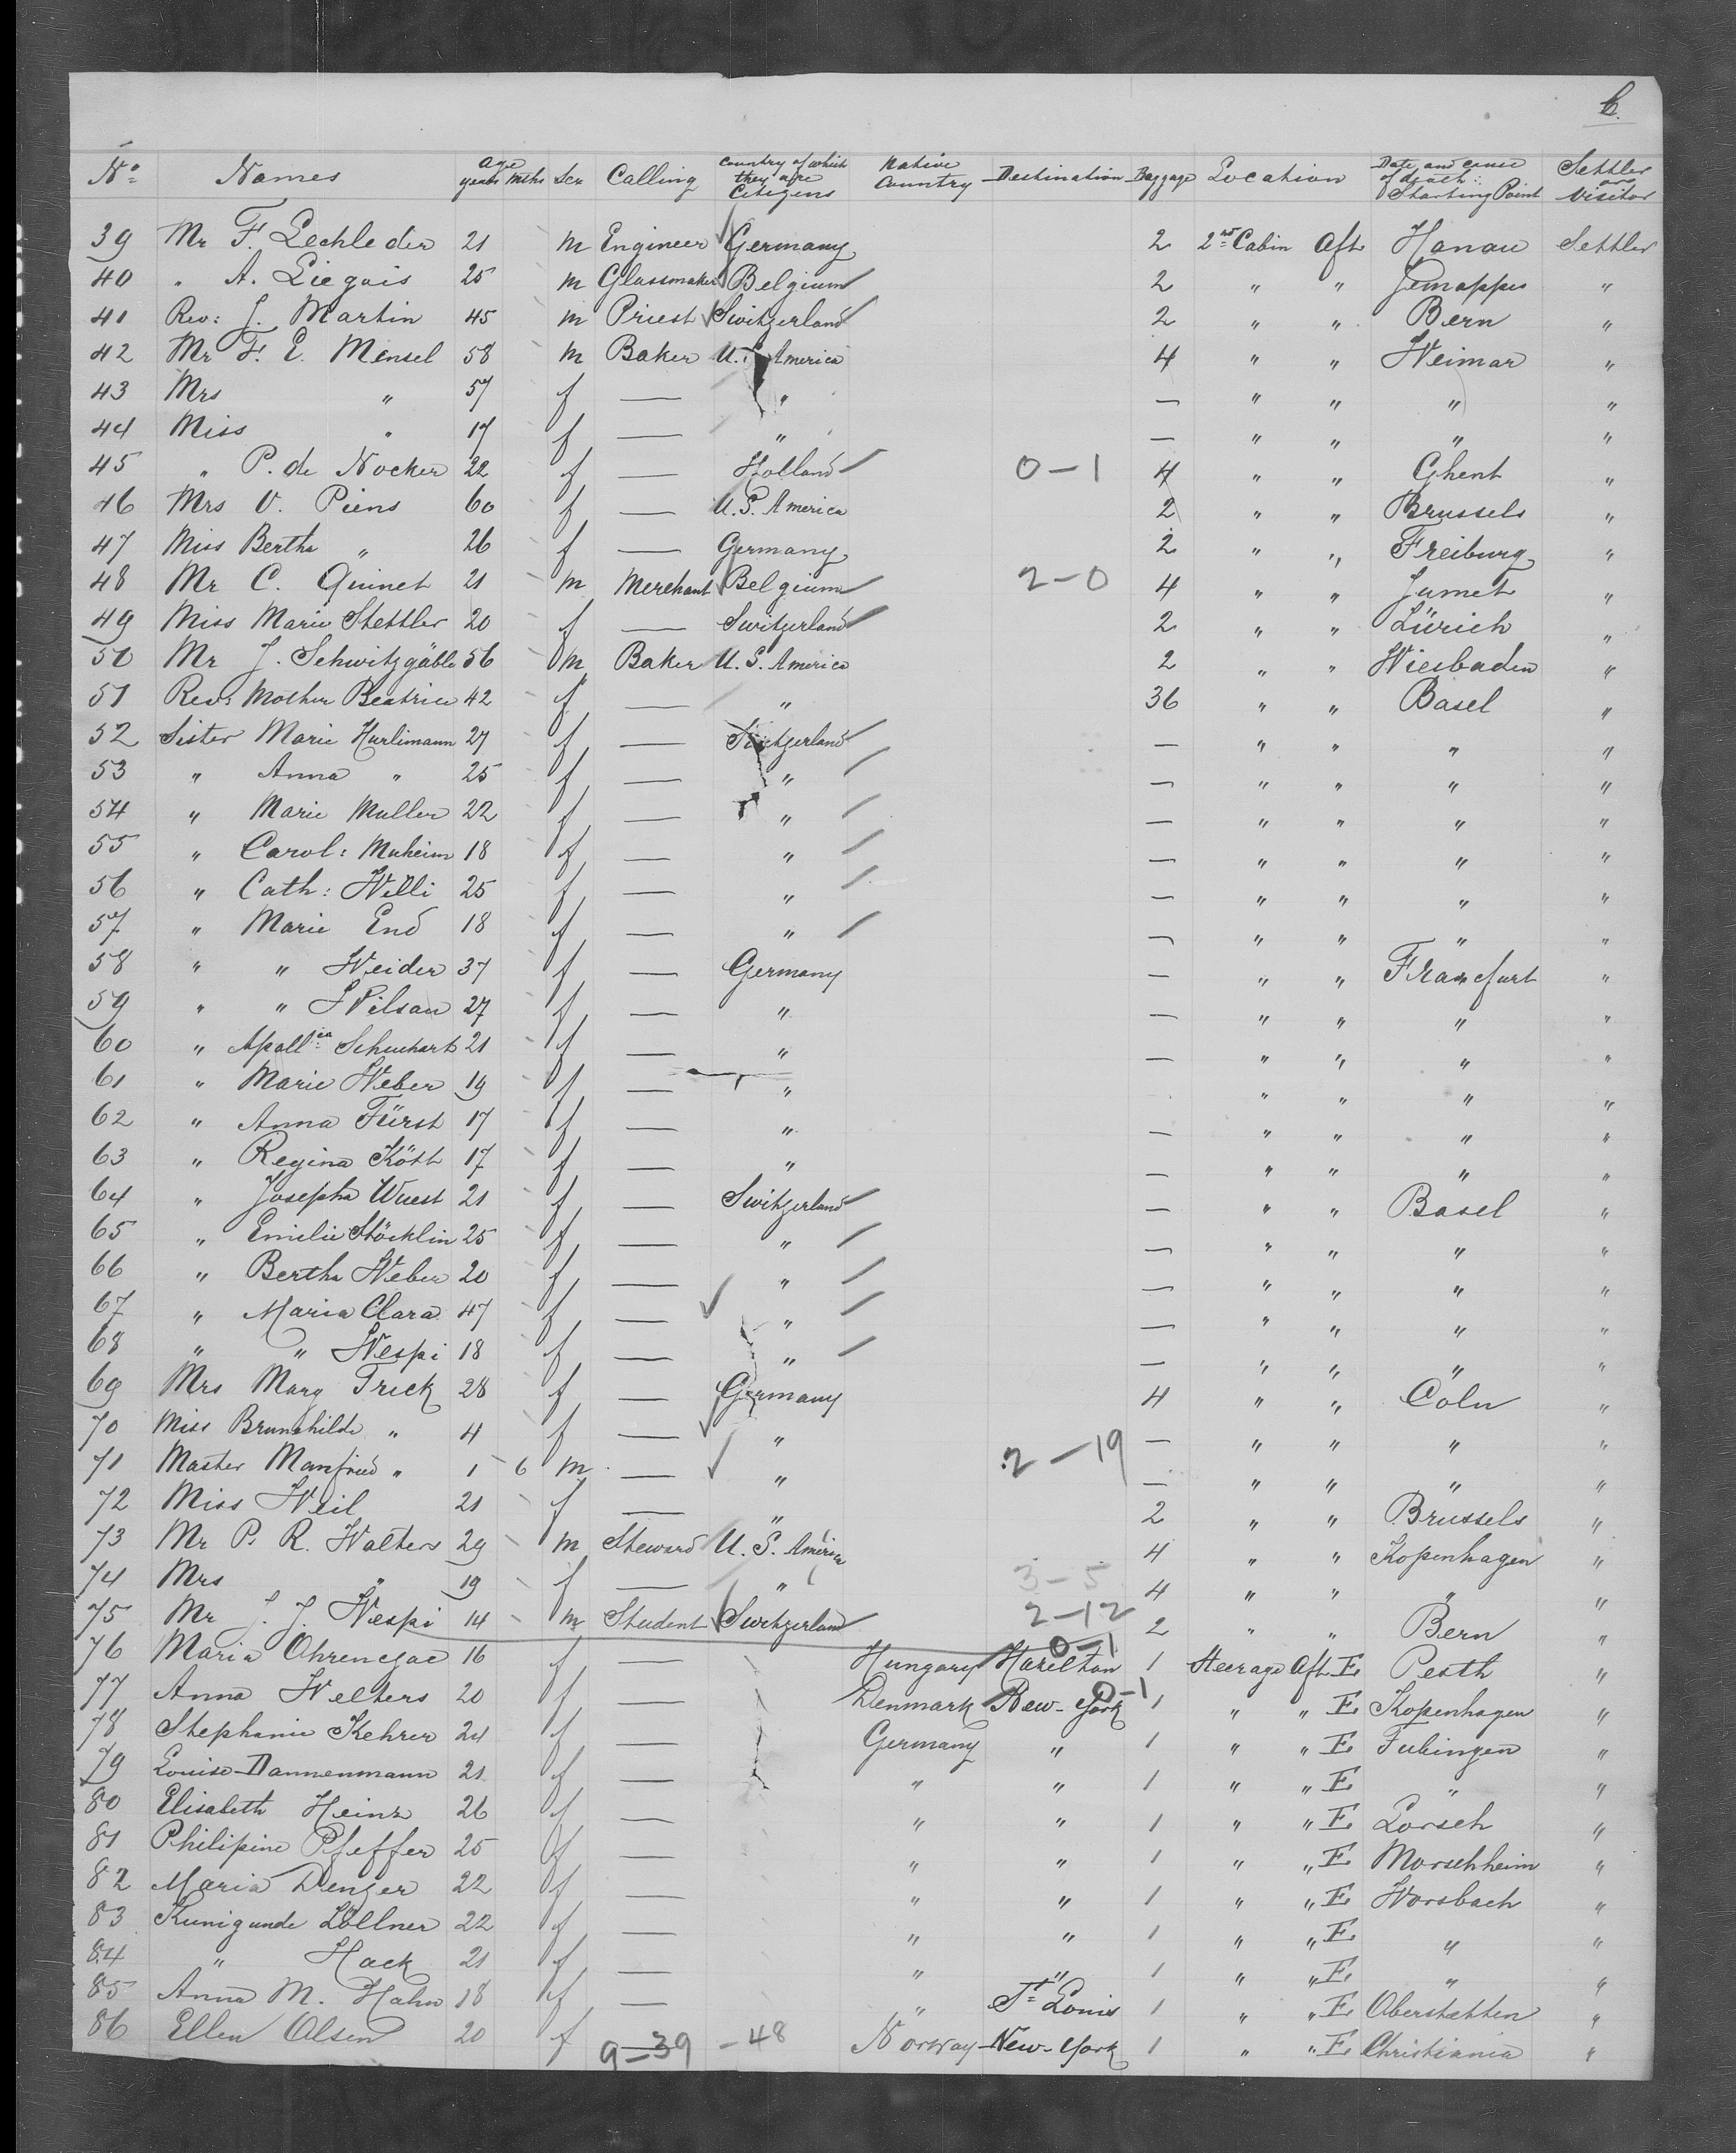 6.
No. Names Age years Mths Sex Calling Country of which they are Citizens Native Country Destination Baggage Location Date and cause of death: Starting Point Settler or Visitor
39 Mr F. Lechleder 21 m Engineer Germany 2 2nd Cabin Aft Hanau Settler
40 " A. Liegois 25 m Glassmaker Belgium 2 " " Jemappes "
41 Rev: J. Martin 45 m Priest Switzerland 2 " " Bern "
42 Mr F. E. Mensel 58 m Baker U.S. America 4 " " Weimar "
43 Mrs " 57 f — " — " " " "
44 Miss " 17 f — " — " " " "
45 " P. de Nocker 22 f — Holland 0-1 4 " " Ghent "
46 Mrs V. Piens 60 f — U.S. America 2 " " Brussels "
47 Miss Bertha " 26 f — Germany 2 " " Freiburg "
48 Mr C. Quinet 21 m Merchant Belgium 2-0 4 " " Jumet "
49 Miss Marie Stettler 20 f — Switzerland 2 " " Zürich "
50 Mr J. Schwitzgäble 56 m Baker U.S. America 2 " " Wiesbaden "
51 Rev: Mother Beatrice 42 f — " 36 " " Basel "
52 Sister Marie Hurlimann 27 f — Switzerland — " " " "
53 " Anna " 25 f — " — " " " "
54 " Marie Muller 22 f — " — " " " "
55 " Carol: Muheim 18 f — " — " " " "
56 " Cath: Willi 25 f — " — " " " "
57 " Marie End 18 f — " — " " " "
58 " " Weider 37 f — Germany — " " Francfurt "
59 " " Wilsau 27 f — " — " " " "
60 " Apollia Schuchart 21 f — " — " " " "
61 " Marie Weber 19 f — " " " " "
62 " Anna Fürst 17 f — " — " " " "
63 " Regina Kött 17 f — " — " " " "
64 " Josepha Wuest 21 f — Switzerland — " " Basel "
65 " Emilie Stöcklin 25 f — " — " " " "
66 " Bertha Weber 20 f — " — " " " "
67 " Maria Clara 47 f — " — " " " "
68 " " Wespi 18 f — " — " " " "
69 Mrs Mary Frick 28 f — Germany 4 " " Cöln "
70 Miss Brunehilde " 4 f — " — " " " "
71 Master Manfried " 1 6 m — " 2-19 — " " " "
72 Miss Weil 21 f — " 2 " " Brussels "
73 Mr P. R. Walters 29 m Steward U.S. America 4 " " Kopenhagen "
74 Mrs " 19 f — " 3-5 4 " " " "
75 Mr J. J. Wespi 14 m Student Switzerland 2-12 2 " " Bern "
76 Maria Ohrenegac 16 f — Hungary Hazelton 0-1 1 Steerage Aft E Pesth "
77 Anna Welters 20 f — Denmark New-York 0-1 1 " " E Kopenhagen "
78 Stephanie Kehrer 24 f — Germany " 1 " " E Tubingen "
79 Louise Dannenmann 21 f — " " 1 " " E " "
80 Elisabeth Heinz 26 f — " " 1 " " E Lorsch "
81 Philipine Pfeffer 25 f — " " 1 " " E Morschheim "
82 Maria Denger 22 f — " " 1 " " E Worsbach "
83 Kunigunde Zöllner 22 f — " " 1 " " E " "
84 " Hack 21 f — " " 1 " " E " "
85 Anna M. Hahn 18 f — " St Louis 1 " " E Oberstetten "
86 Ellen Olsen 20 f — Norway New-York 1 " " E Christiania "
9-39 -48